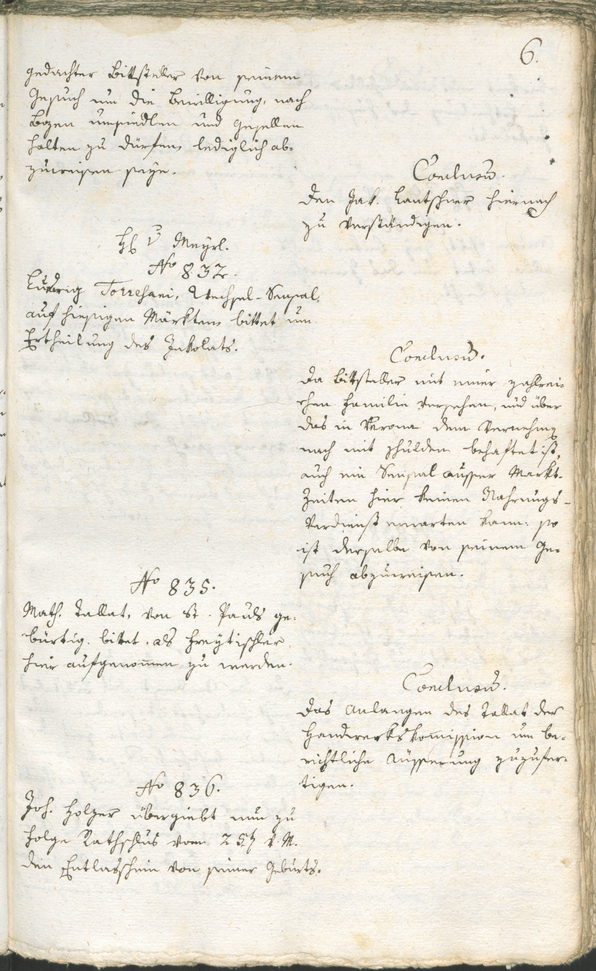 6.
gedachter Bittsteller von seinem
Gesuch um die Bewilligung, nach
Bozen umsiedlen und Gesellen
halten zu dürfen, lediglich ab-
zuweisen seÿe.
Conclusum.
Den Jak. Lantschner hiernach
zu verständigen.
H. v. Meyrl.
No 832.
Ludwig Torresani, Wechsel-Sensal
auf hiesigen Märkten bittet um
Ertheilung des Inkolats.
Conclusum.
Da Bittsteller mit einer zahlrei-
chen Familie versehen, und über
das in Verona dem Vernehmen
nach mit Schulden behaftet ist,
auch ein Sensal ausser Markt-
Zeiten hier keinen Nahrungs-
Verdienst erwarten kann: so
ist derselbe von seinem Ge-
such abzuweisen.
No 835.
Math. Tallat, von St. Pauls ge-
bürtig, bittet, als Freytischler
hier aufgenommen zu werden.
Conclusum.
Das Anlangen des Tallat der
Handwerkskommission um be-
richtliche Äusserung zuzufer-
tigen.
No 836.
Joh. Holzer übergiebt nun zu
Folge Rathschlus vom 25t d. M.
den Entlasschein von seiner Geburts-